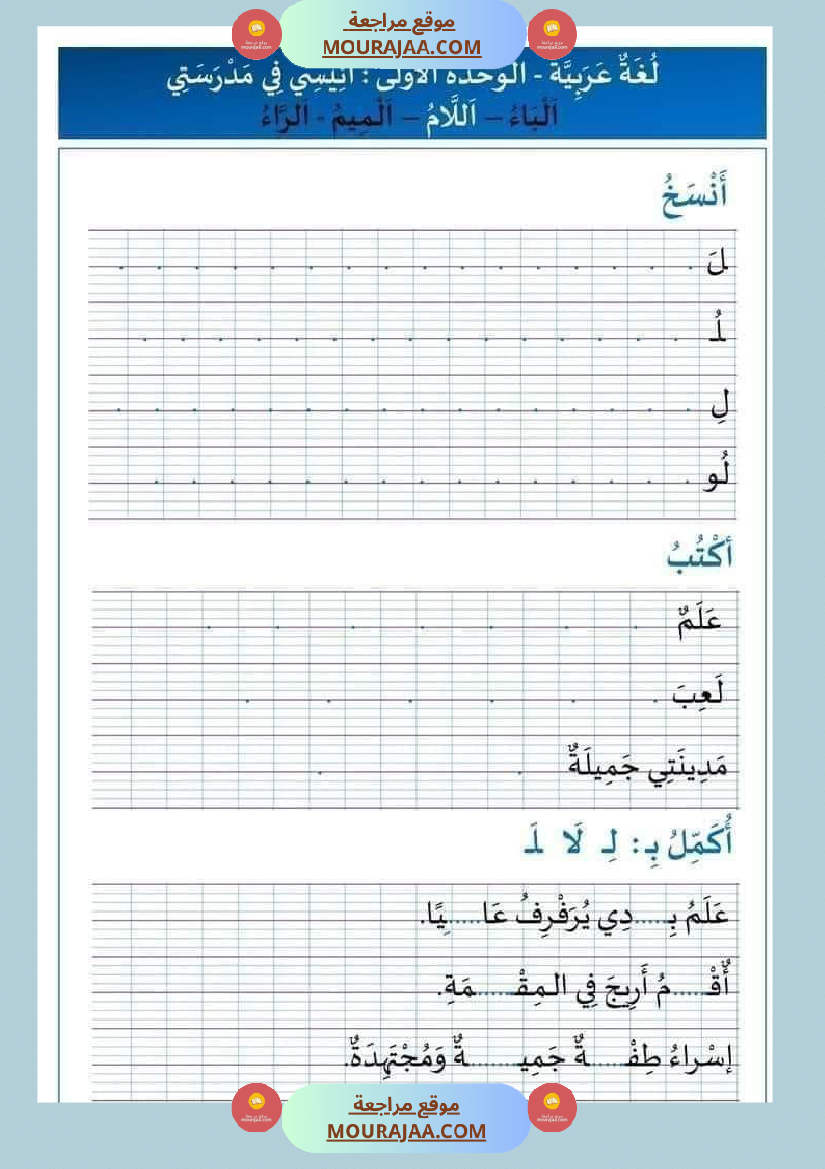 موقع مراجعة
MOURAJAA.COM
لُغَةٌ عَرَبِيَّة - الوحدة الأولى : أَنِيسِي فِي مَدْرَسَتِي
اَلْبَاءُ – اَللَّامُ – اَلْمِيمُ - اَلرَّاءُ
أَنْسَخُ
لَ . . . . . . . . . . . . . . . .
لُـ . . . . . . . . . . . . . . .
لِ . . . . . . . . . . . . . . . .
لُو . . . . . . . . . . . . . . .
أَكْتُبُ
عَلَمٌ . . . . . . .
لَعِبَ . . . . . .
مَدِينَتِي جَمِيلَةٌ . .
أُكَمِّلُ بِـ: لِـ لَا لَـ
عَلَمُ بِـ.....دِي يُرَفْرِفُ عَا.....ـيًا.
أَقْـ.....مُ أَرِيجَ فِي الـمِقْـ.....ـمَةِ.
إسْراءُ طِفْـ.....ـةٌ جَمِيـ.......ـةٌ وَمُجْتَهِدَةٌ.
موقع مراجعة
MOURAJAA.COM